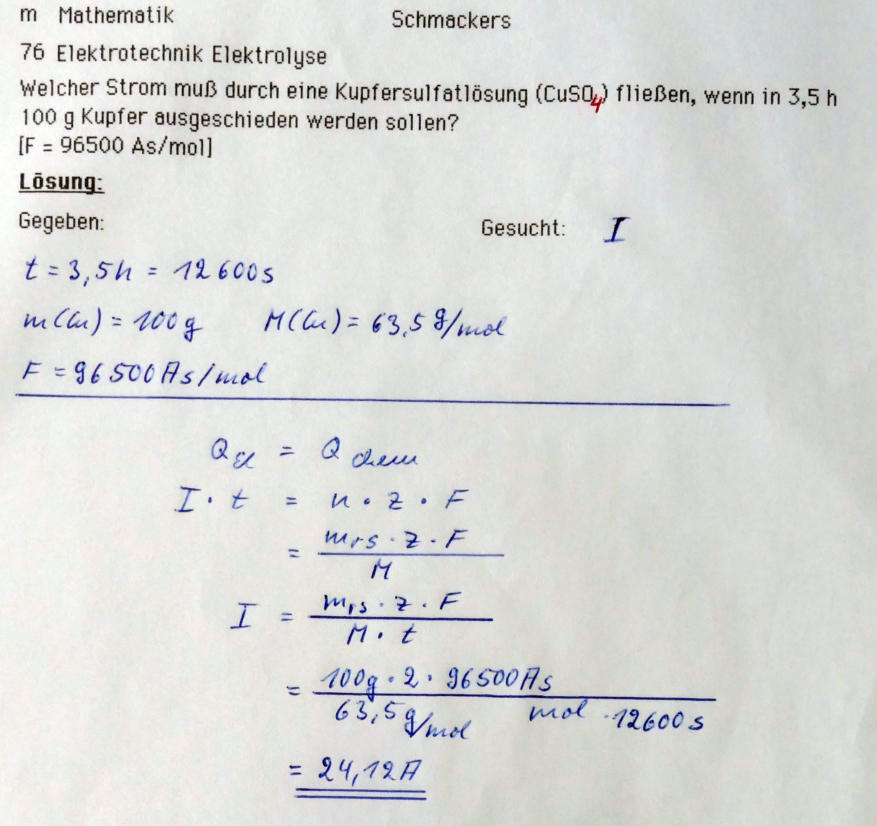 m Mathematik Schmackers
76 Elektrotechnik Elektrolyse
Welcher Strom muß durch eine Kupfersulfatlösung (CuSO4) fließen, wenn in 3,5 h
100 g Kupfer ausgeschieden werden sollen?
[F = 96500 As/mol]
Lösung:
Gegeben: Gesucht: I
t = 3,5h = 12600s
m(Cu) = 100g M(Cu) = 63,5 g/mol
F = 96500As/mol
Qel = Qchem
I · t = n · z · F
= mrs · z · F
M
I = mrs · z · F
M · t
= 100g · 2 · 96500As
63,5 g/mol mol · 12600s
= 24,12A